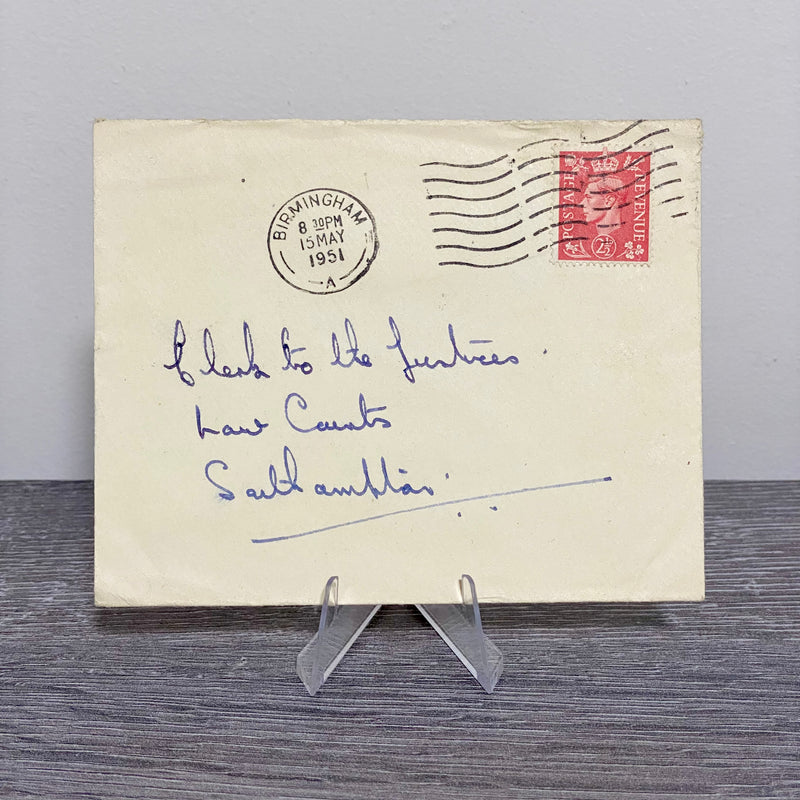 BIRMINGHAM
8 30PM
15 MAY
1951
A
POSTAGE REVENUE
2½
Clerk to the Justices
Law Courts
Southampton